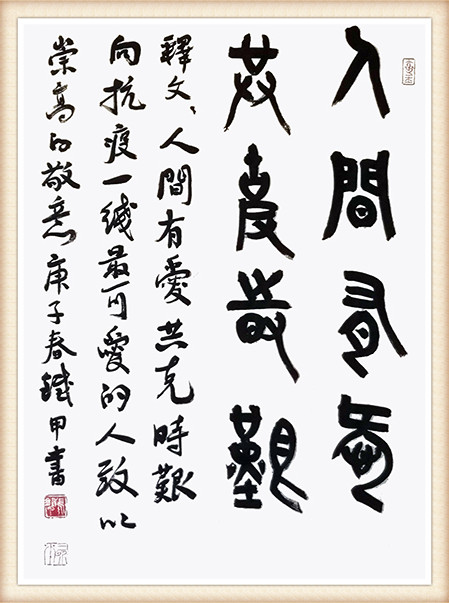 人間有愛
共克時艱
釋文、人間有愛共克時艱
向抗疫一綫最可愛的人致以
崇高的敬意庚子春鐵甲書